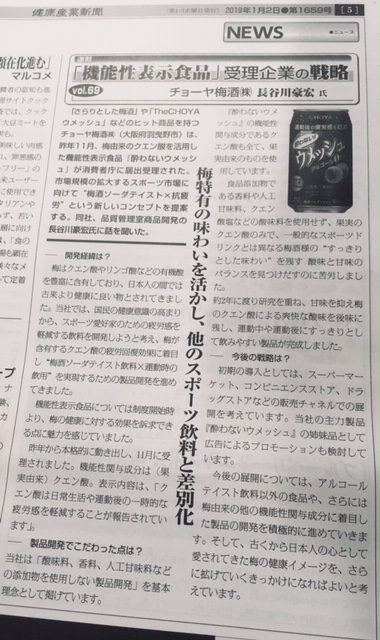 健康産業新聞
2019年1月2日●第1659号
【5】
NEWS
●ニュース
顕在化進む」
マルコメ
連載
「機能性表示食品」受理企業の戦略
vol.69
チョーヤ梅酒㈱ 長谷川豪宏 氏
「さらりとした梅酒」や「The CHOYA
ウメッシュ」などのヒット商品を持つ
チョーヤ梅酒㈱(大阪府羽曳野市)は、
昨年11月、梅由来のクエン酸を活用し
た機能性表示食品「酔わないウメッシ
ュ」が消費者庁に届出受理された。
市場規模の拡大するスポーツ市場に
向けて“梅酒ソーダテイスト×抗疲
労”という新しいコンセプトを提案す
る。同社、品質管理室商品開発の
長谷川豪宏氏に話を聞いた。
梅特有の味わいを活かし、他のスポーツ飲料と差別化
― 開発経緯は?
梅はクエン酸やリンゴ酸などの有機酸
を豊富に含有しており、日本人の間では
古来より健康に良い物とされてきまし
た。当社では、国民の健康意識の高まり
から、スポーツ愛好家のための疲労感を
軽減する飲料を開発しようと考え、梅が
含有するクエン酸の疲労回復効果に着目
し“梅酒ソーダテイスト飲料×運動時の
飲用”を実現するための製品開発を進め
てきました。
機能性表示食品については制度開始時
より、梅の健康に対する効果を訴求でき
る点に魅力を感じていました。
昨年から本格的に動き出し、11月に受
理されました。機能性関与成分は(果
実由来)クエン酸。表示内容は、『ク
エン酸は日常生活や運動後の一時的な
疲労感を軽減することが報告されてい
ます』。
― 製品開発でこだわった点は?
当社は「酸味料、香料、人工甘味料など
の添加物を使用しない製品開発」を基本
理念として掲げています。
『酔わないウメッシ
ュ』の機能性関
与成分であるクエ
ン酸も全て、果実
由来のものを使
用しています。
食品添加物で
ある香料や人工
甘味料、クエン
酸塩などの酸味料を使用せず、果実の
クエン酸のみで、一般的なスポーツド
リンクとは異なる梅酒様の“すっきり
とした味わい”を残す 酸味と甘味の
バランスを見つけだすのに苦労しまし
た。
約2年に渡り研究を重ね、甘味を抑え梅
のクエン酸による爽快な酸味を後味に
残し、運動中や運動後にすっきりとし
て飲みやすい製品が完成しました。
― 今後の戦略は?
初期の導入としては、スーパーマー
ケット、コンビニエンスストア、ドラ
ッグストアなどの販売チャネルでの展
開を考えています。当社の主力製品
『酔わないウメッシュ』の姉妹品として
広告によるプロモーションも検討して
います。
今後の展開については、アルコール
テイスト飲料以外の食品や、さらには
梅由来の他の機能性関与成分に着目し
た製品の開発を積極的に進めていきま
す。そして、古くから日本人の心として
愛されてきた梅の健康イメージを、さら
に拡げていくきっかけになればよいと考
えています。